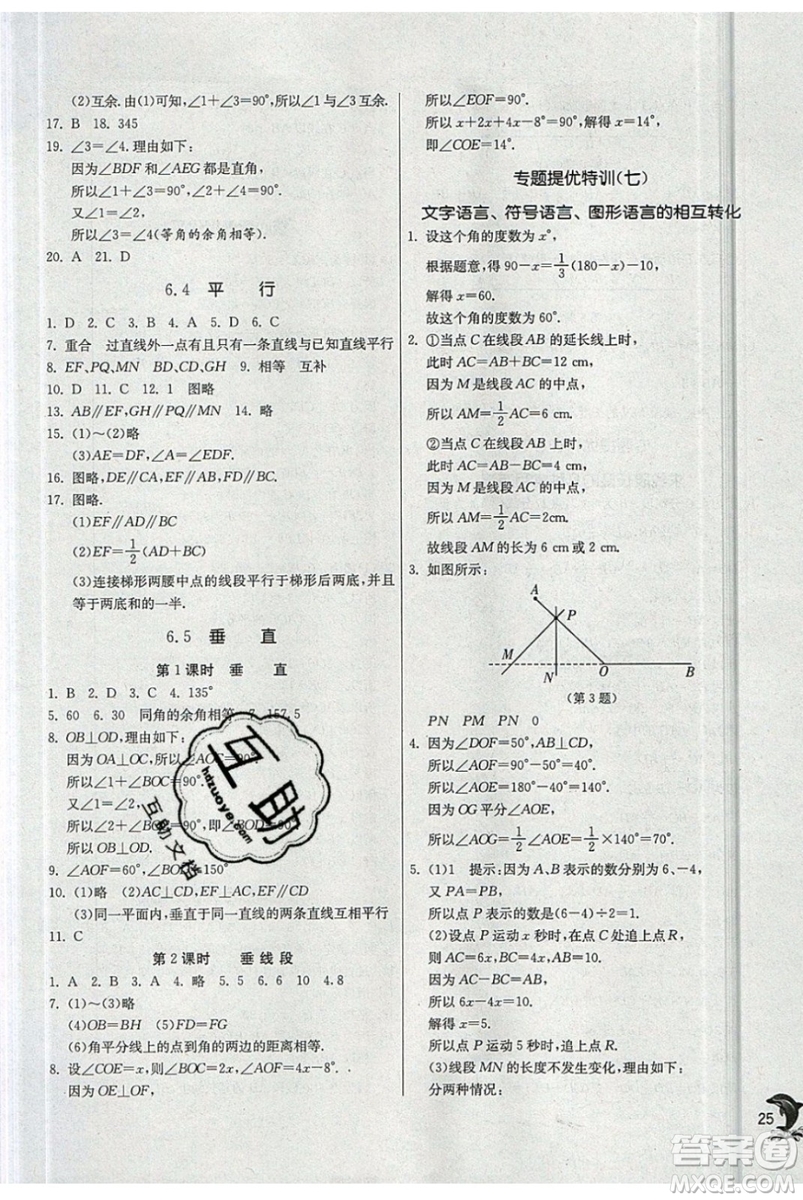 (2)互余.由(1)可知,∠1+∠3=90°,所以∠1与∠3互余.
17. B  18. 345
19. ∠3=∠4.理由如下:
因为∠BDF和∠AEG都是直角,
所以∠1+∠3=90°,∠2+∠4=90°.
又∠1=∠2,
所以∠3=∠4(等角的余角相等).
20. A  21. D
6.4 平 行
1. D  2. C  3. B  4. D  5. D  6. C
7. 重合  过直线外一点有且只有一条直线与已知直线平行
8. EF,PQ,MN  BD,CD,GH  9. 相等  互补
10. D  11. C  12. 1  图略
13. AB∥EF,GH∥PQ∥MN  14. 略
15. (1)~(2)略
(3)AE=DF,∠A=∠EDF.
16. 图略,DE∥CA,EF∥AB,DF∥CB.
17. 图略.
(1)EF∥AD∥BC
(2)EF=1/2(AD+BC)
(3)连接梯形两腰中点的线段平行于梯形后两底,并且
等于两底和的一半.
6.5 垂 直
第1课时 垂 直
1. B  2. D  3. C  4. 135°
5. 60  6. 30  同角的余角相等  7. 157.5
8. OB⊥OD,理由如下:
因为OA⊥OC,所以
所以∠1+∠BOC=90°.
又∠1=∠2,
所以∠2+∠BOC=90°,即∠BOD=90°
所以OB⊥OD.
9. ∠AOF=60°,∠BOC=150°
10. (1)略  (2)AC⊥CD,AB⊥BD
(3)同一平面内,垂直于同一直线的两条直线互相平行
11. C
第2课时 垂线段
1. A  2. B  3. A  4. 略  5. 5  6. 6  10  4.8
7. (1)~(3)略
(4)OB=BH  (5)FD=FG
(6)角平分线上的点到角的两边的距离相等.
8. 设∠COE=x,则∠BOC=2x,∠AOF=4x-8°.
因为OE⊥OF,
所以∠EOF=90°.
所以x+2x+4x-8°=90°,解得x=14°,
即∠COE=14°.
专题提优特训(七)
文字语言、符号语言、图形语言的相互转化
1. 设这个角的度数为x°,
根据题意,得90-x=1/3(180-x)-10,
解得x=60.
故这个角的度数为60°.
2. ①当点C在线段AB的延长线上时,
此时AC=AB+BC=12 cm,
因为M是线段AC的中点,
所以AM=1/2AC=6 cm.
②当点C在线段AB上时,
此时AC=AB-BC=4 cm,
因为M是线段AC的中点,
所以AM=1/2AC=2cm.
故线段AM的长为6 cm或2 cm.
3. 如图所示:
A
P
M
N
O
B
(第3题)
PN  PM  PN  0
4. 因为∠DOF=50°,AB⊥CD,
所以∠BOF=90°-50°=40°,
所以∠AOE=180°-40°=140°.
因为OG平分∠AOE,
所以∠AOG=1/2∠AOE=1/2×140°=70°.
5. (1)1  提示:因为A、B表示的数分别为6、-4,
又PA=PB,
所以P点表示的数(6-4)÷2=1.
(2)设点P运动x秒时,在点C处追上点R,
则AC=6x,BC=4x,AB=10,
因为AC-BC=AB,
所以6x-4x=10,
解得x=5.
所以点P运动5秒时,追上点R.
(3)线段MN的长度不发生变化,理由如下:
分两种情况:
25
互助
hdzuoye.com
互助文档
答案圈
MXQE.COM